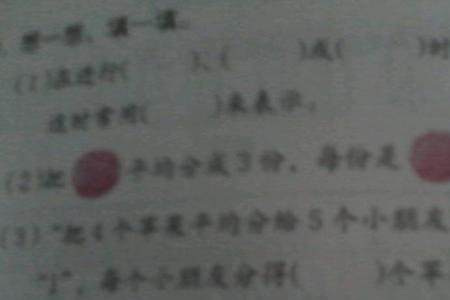 想一想、填一填。
(1)在进行(  )、(  )或(  )时
这时常用(  )来表示。
(2)把 平均分成3份，每份是
(3)"把4个苹果平均分给5个小朋友
"1"，每个小朋友分得(  )个苹